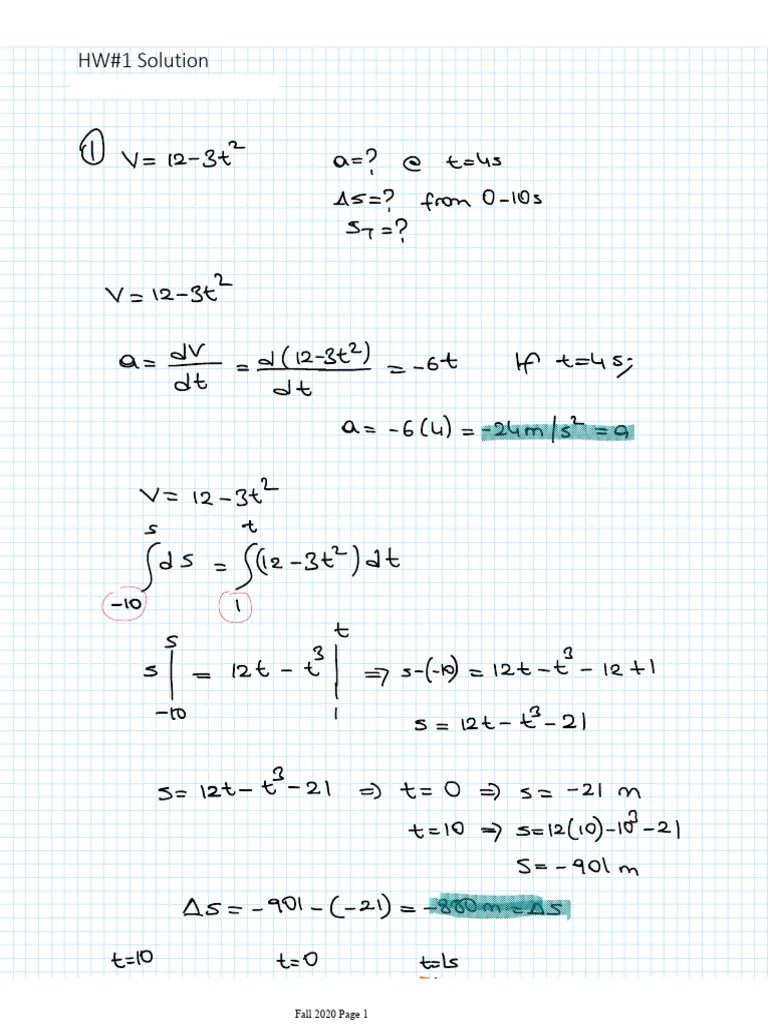 HW#1 Solution
① V = 12-3t² a=? @ t=4s
Δs=? from 0-10s
s_T=?
V = 12-3t²
a = dV/dt = d(12-3t²)/dt = -6t If t=4s;
a = -6(4) = -24m/s² = a
V = 12-3t²
∫_{-10}^{s} ds = ∫_{1}^{t} (12-3t²)dt
s|_{-10}^{s} = 12t-t³|_{1}^{t} ⇒ s-(-10) = 12t-t³-12+1
s = 12t-t³-21
s = 12t-t³-21 ⇒ t=0 ⇒ s = -21 m
t=10 ⇒ s=12(10)-10³-21
s=-901 m
Δs = -901-(-21) = -880m = Δs
t=10 t=0 t=1s
Fall 2020 Page 1